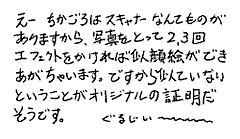 えー ちかごろはスキャナーなんてものが
ありますから、写真をとって2,3回
エフェクトをかければ似顔絵ができ
あがちゃいます。ですから似ていない
ということがオリジナルの証明だ
そうです。 ぐるじい〜〜〜